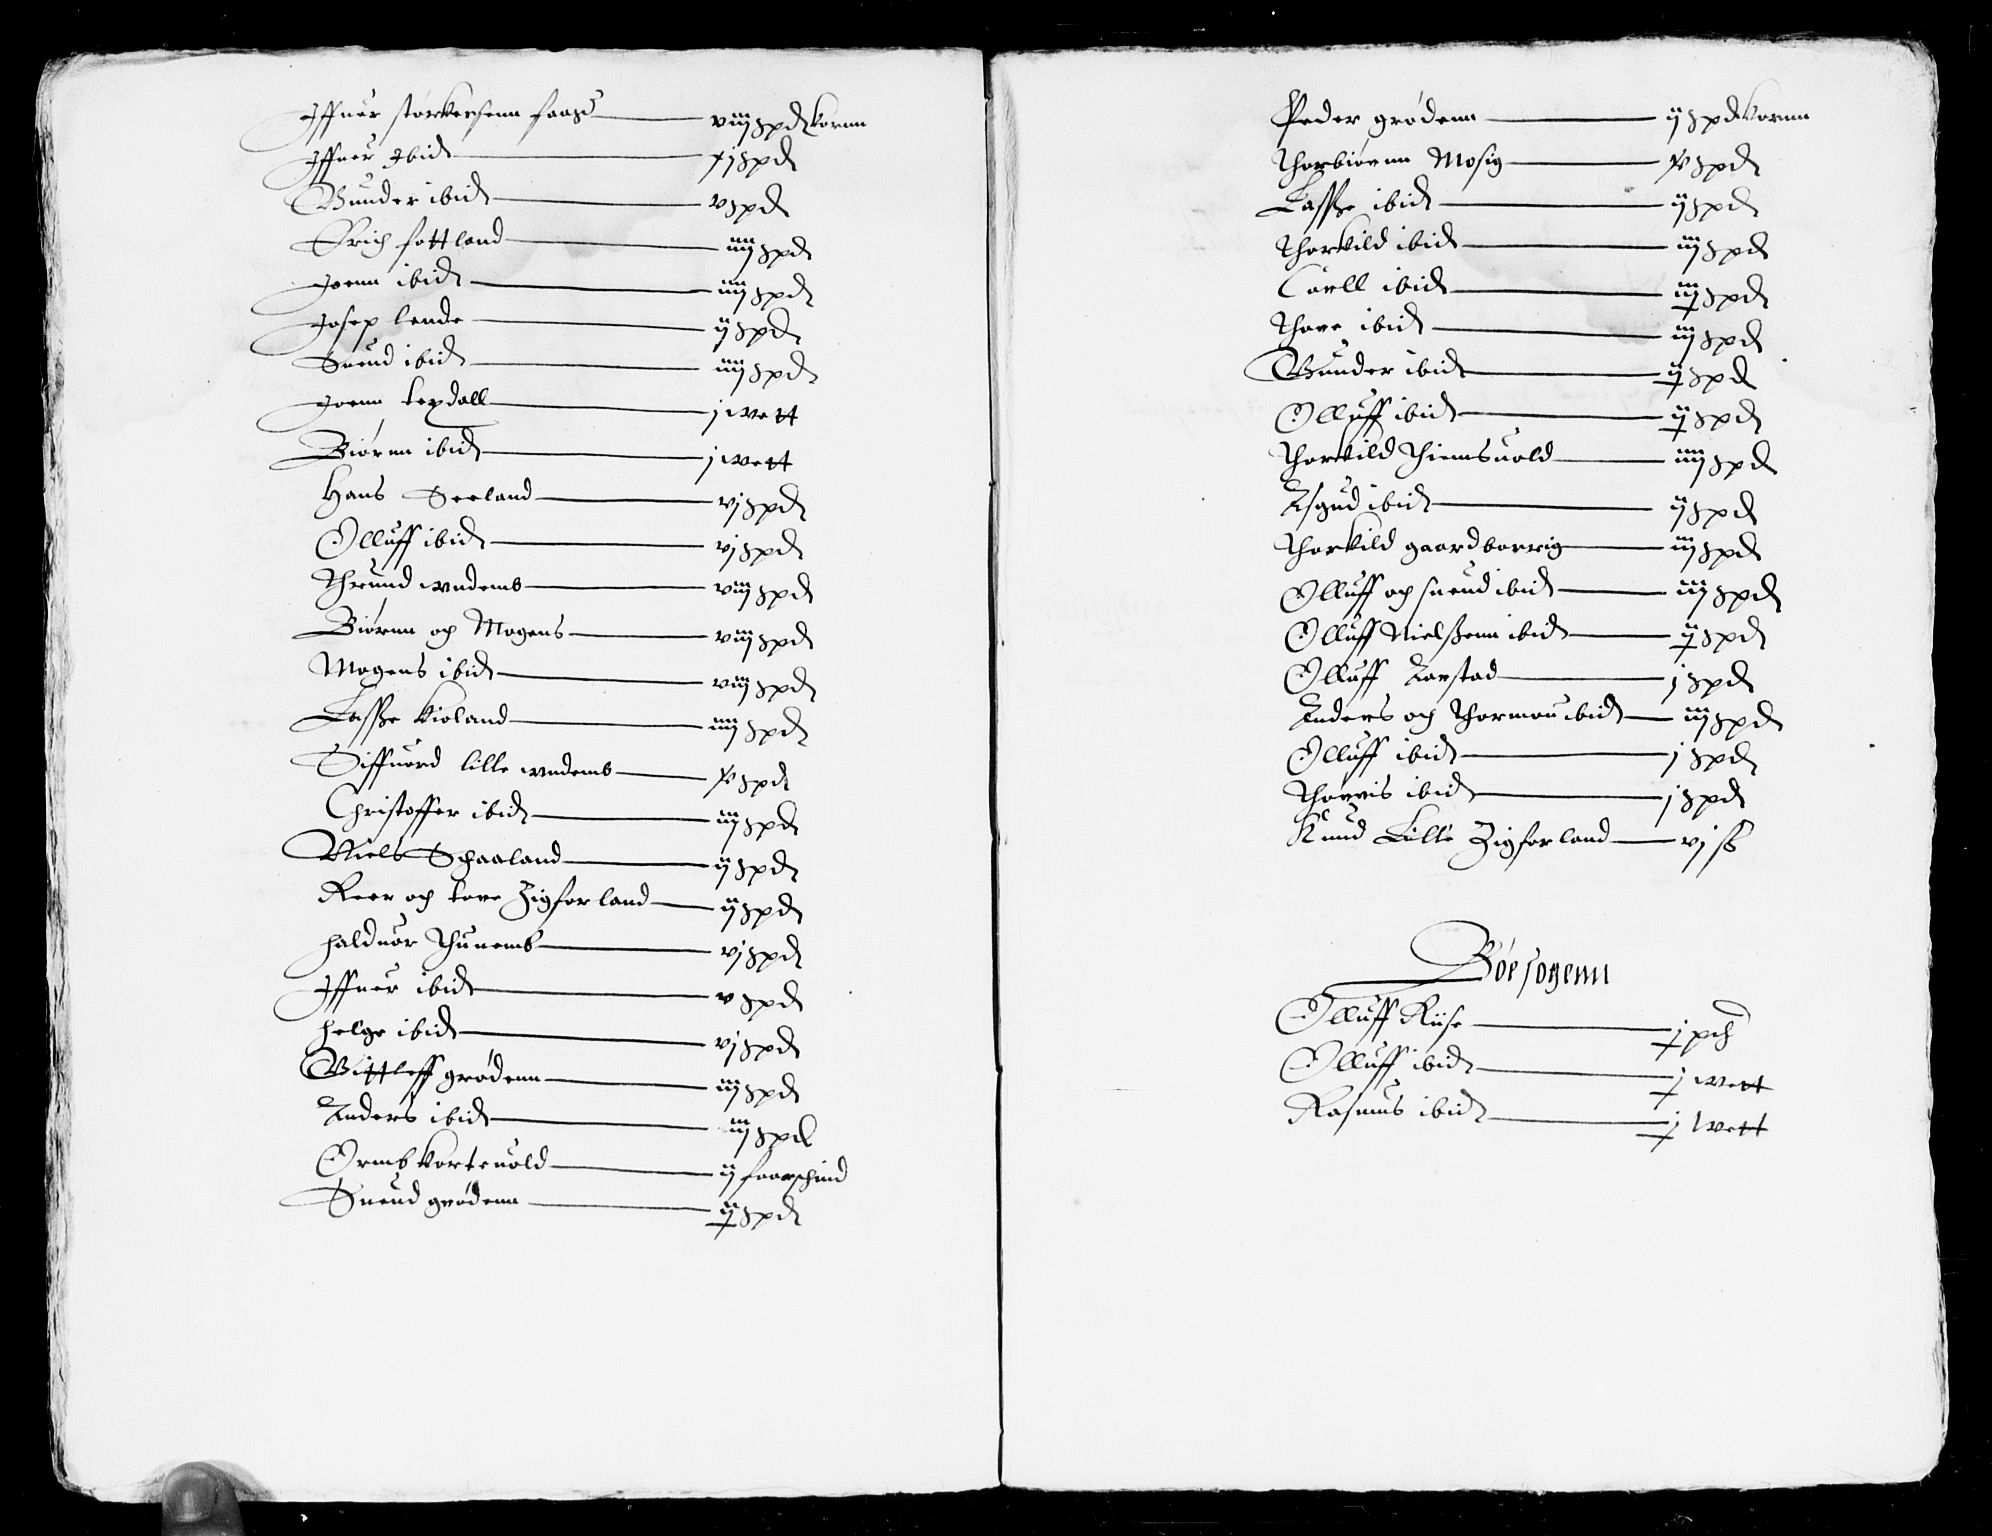 Iffuer storkersenn faagd viij spd kornn
Iffuer Ibid xj spd
Gunder ibid v spd
Erich fottland iiij spd
Joenn ibid iiij spd
Josep lende ij spd
Suend ibid iiij spd
Joenn teydall j wett
Biørnn ibid j wett
Hans Seeland vj spd
Olluff ibid vj spd
Thrund vndemb viij spd
Biørnn og Mogens viij spd
Mogens ibid viij spd
Laffße kioland iiij spd
Siffuerd lille vndemb spd
Christoffer ibid iij spd
Niels Schaaland ij spd
Reer och tore Zigforland ij spd
halduor Thunemb vj spd
Iffuer ibid v spd
helge ibid vj spd
Gittleff grødenn iij spd
Anders ibid iij spd
Ormb kortuold ij faarschind
Suend grødenn ij spd
Peder grødenn ij spd kornn
Thorbiørnn Mosig spd
Laffße ibid ij spd
Thorkild ibid iij spd
Carll ibid iij spd
Thore ibid iij spd
Gunder ibid ij spd
Olluff ibid ij spd
Thorkild Thiemsuold iiij spd
Asgud ibid ij spd
Thorkild gaardborrig iij spd
Olluff och suend ibid iij spd
Olluff Nielßenn ibid ij spd
Olluff Aarstad j spd
Anders och Thormou ibid iij spd
Olluff ibid j spd
Thorris ibid j spd
Knud Lille Zigforland vj ß
Bøe sogenn
Olluff Riise j pch
Olluff ibid j wett
Rasmus ibid j wett